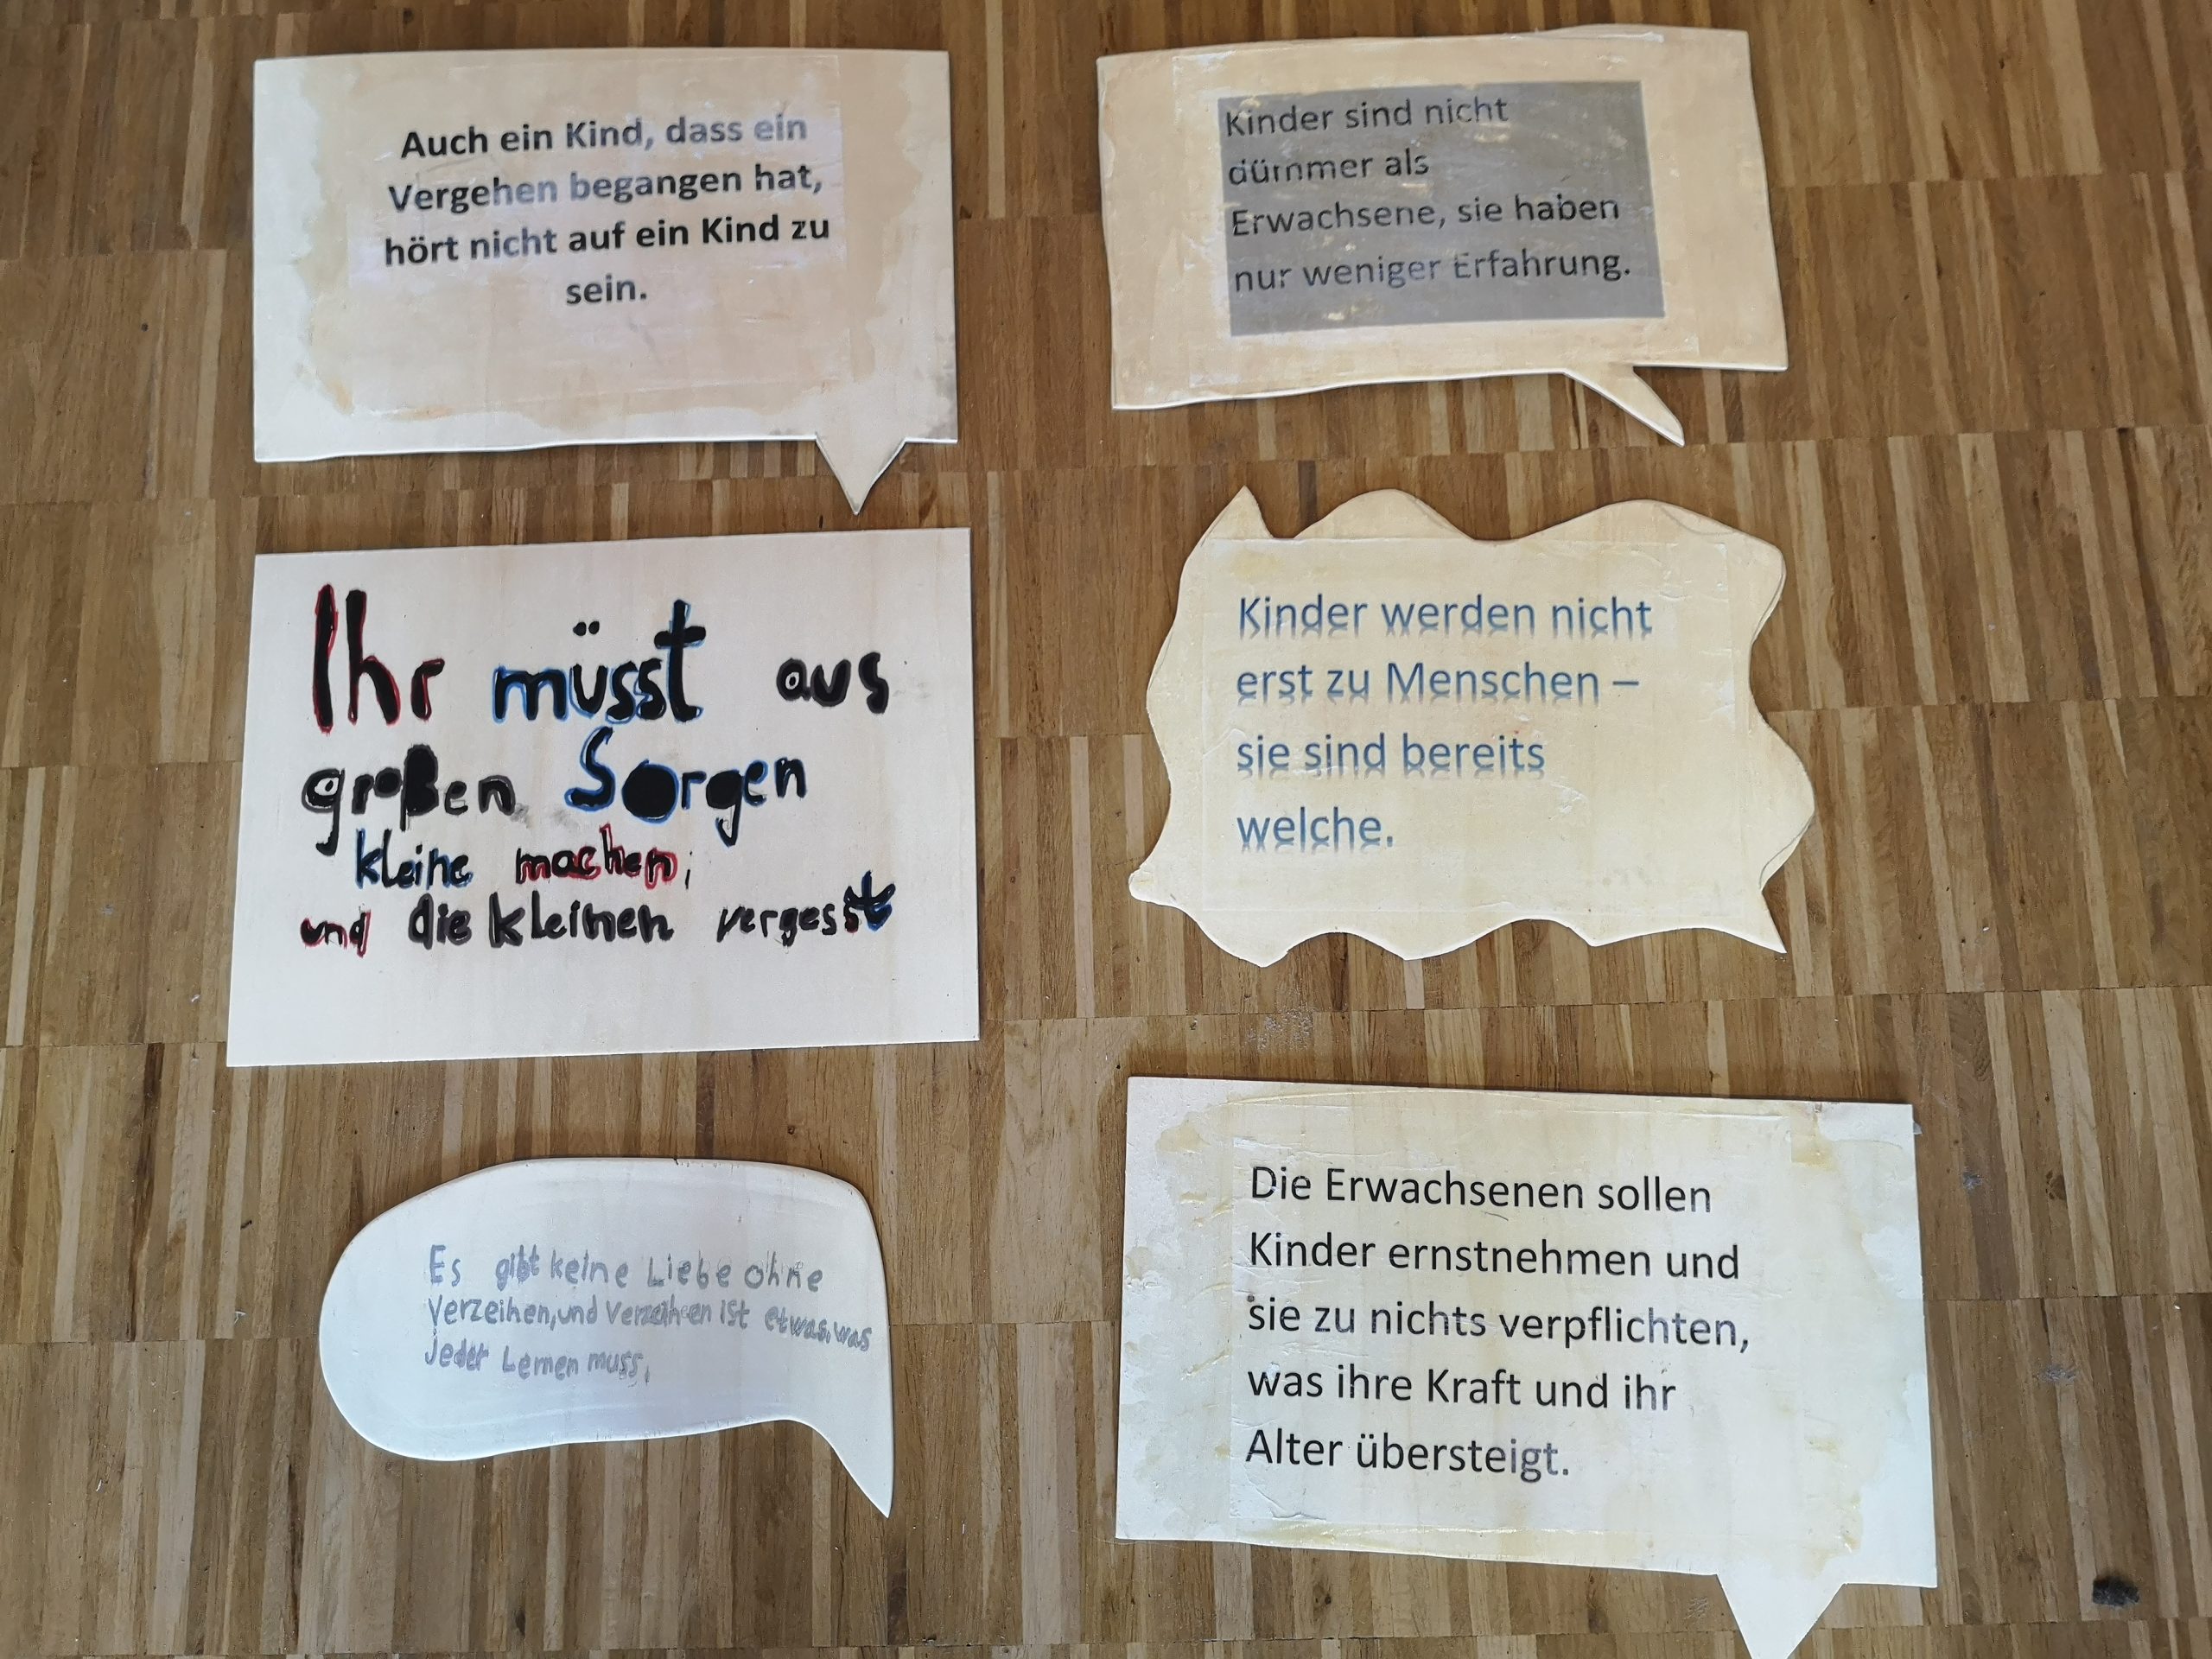 Auch ein Kind, dass ein
Vergehen begangen hat,
hört nicht auf ein Kind zu
sein.
Kinder sind nicht
dümmer als
Erwachsene, sie haben
nur weniger Erfahrung.
Ihr müsst aus
großen Sorgen
kleine machen,
und die kleinen vergesst
Kinder werden nicht
erst zu Menschen –
sie sind bereits
welche.
Es gibt keine Liebe ohne
Verzeihen, und Verzeihen ist etwas, was
jeder Lernen muss.
Die Erwachsenen sollen
Kinder ernstnehmen und
sie zu nichts verpflichten,
was ihre Kraft und ihr
Alter übersteigt.